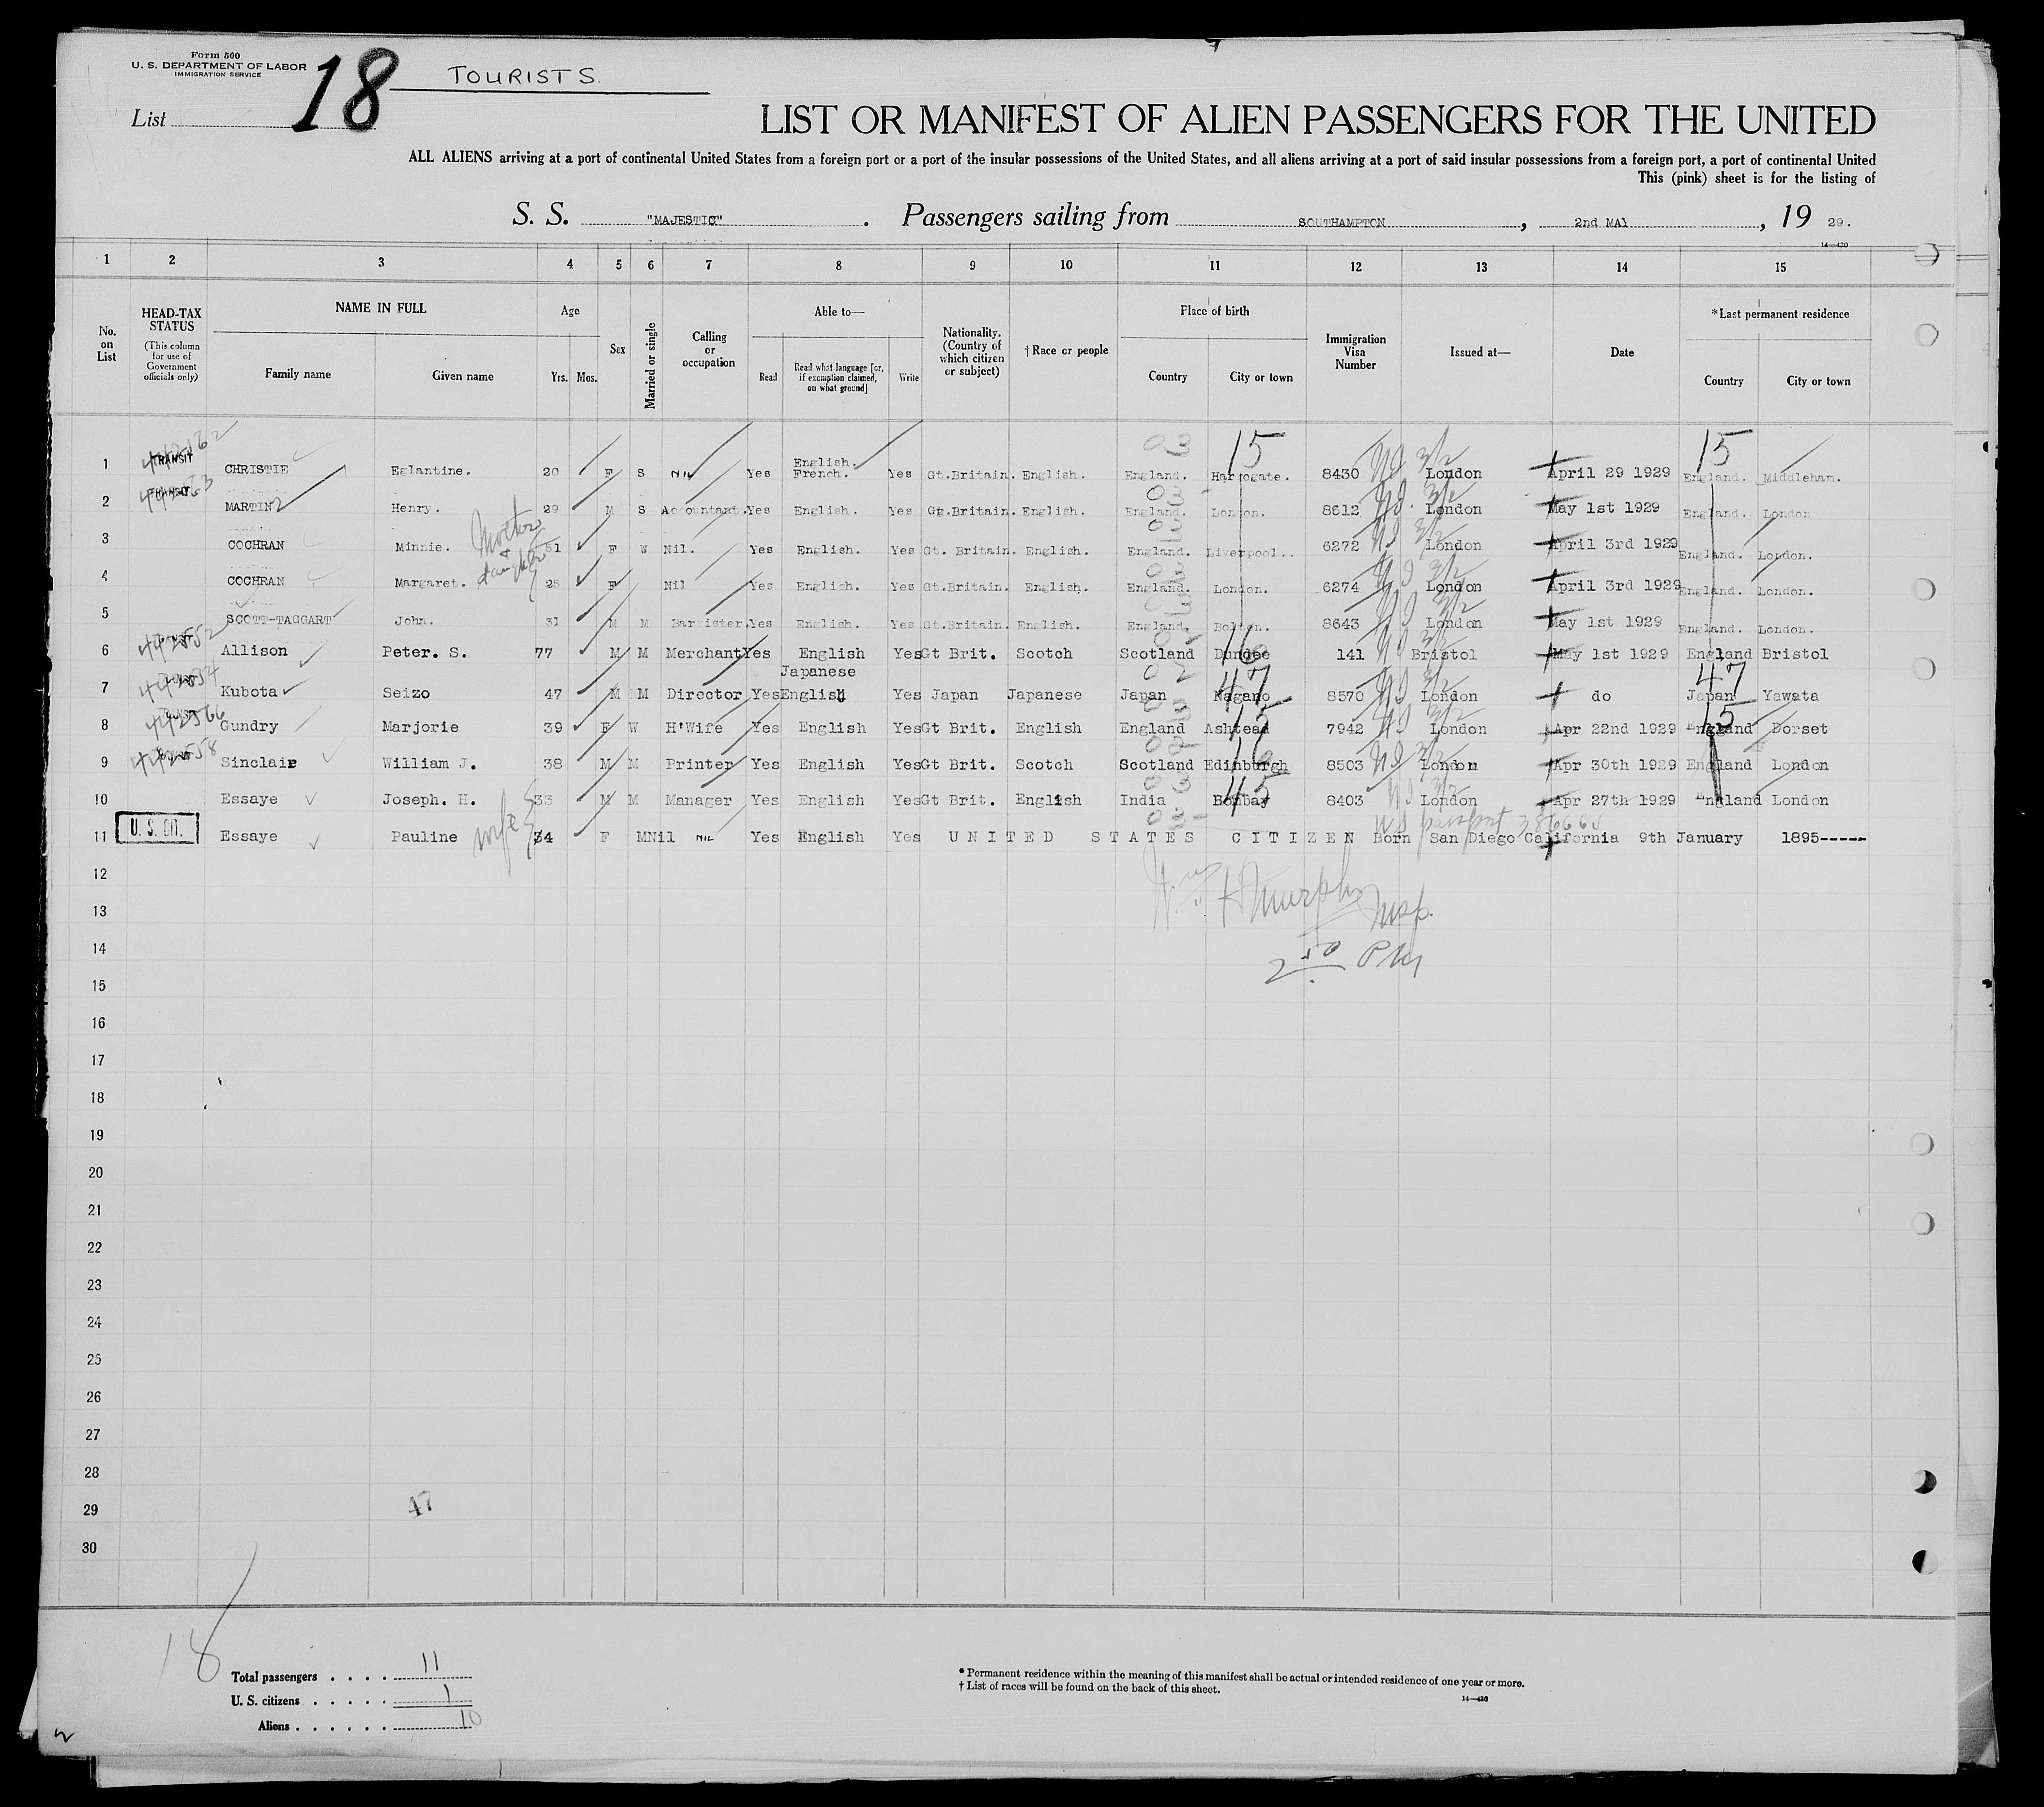 Form 500
U. S. DEPARTMENT OF LABOR
IMMIGRATION SERVICE
List 18
TOURISTS.
LIST OR MANIFEST OF ALIEN PASSENGERS FOR THE UNITED
ALL ALIENS arriving at a port of continental United States from a foreign port or a port of the insular possessions of the United States, and all aliens arriving at a port of said insular possessions from a foreign port, a port of continental United
This (pink) sheet is for the listing of
S. S. "MAJESTIC". Passengers sailing from SOUTHAMPTON, 2nd MAY, 19 29.
14—430
1 2 3 4 5 6 7 8 9 10 11 12 13 14 15
No. on List HEAD-TAX STATUS (This column for use of Government officials only) NAME IN FULL Family name Given name Age Yrs. Mos. Sex Married or single Calling or occupation Able to— Read Read what language [or, if exemption claimed, on what ground] Write Nationality. (Country of which citizen or subject) †Race or people Place of birth Country City or town Immigration Visa Number Issued at— Date *Last permanent residence Country City or town
1 TRANSIT CHRISTIE Eglantine. 20 F S Nil Yes English. French. Yes Gt.Britain. English. England. Harrogate. 15 8430 London April 29 1929 15 England. Middleham.
2 TRANSIT MARTIN Henry. 29 M S Accountant. Yes English. Yes Gt.Britain. English. England. London. 8612 London May 1st 1929 England. London
3 COCHRAN Minnie. Mother 51 F W Nil. Yes English. Yes Gt. Britain. English. England. Liverpool.. 6272 London April 3rd 1929 England. London.
4 COCHRAN Margaret. + daughter 25 F Nil Yes English. Yes Gt.Britain. English. England. London. 6274 London April 3rd 1929 England. London.
5 SCOTT-TAGGART John. 31 M M Barrister. Yes English. Yes Gt.Britain. English. England. Bolton. 8643 London May 1st 1929 England. London.
6 Allison Peter. S. 77 M M Merchant Yes English Yes Gt Brit. Scotch Scotland Dundee 16 141 Bristol May 1st 1929 England Bristol
7 Kubota Seizo 47 M M Director Yes Japanese English Yes Japan Japanese Japan Nagano 47 8570 London do 47 Japan Yawata
8 Gundry Marjorie 39 F W H'Wife Yes English Yes Gt Brit. English England Ashtead 15 7942 London Apr 22nd 1929 15 England Dorset
9 Sinclair William J. 38 M M Printer Yes English Yes Gt Brit. Scotch Scotland Edinburgh 16 8503 London Apr 30th 1929 England London
10 Essaye Joseph. H. 33 M M Manager Yes English Yes Gt Brit. English India Bombay 45 8403 London Apr 27th 1929 England London
U S passport
11 U. S. CIT. Essaye Pauline wife 34 F M Nil NIL Yes English Yes UNITED STATES CITIZEN Born San Diego California 9th January 1895-----
12
H Murphy Insp.
13
14
2 50 PM
15
16
17
18
19
20
21
22
23
24
25
26
27
28
29 47
30
18
Total passengers . . . . 11
U. S. citizens . . . . . 1
Aliens . . . . . . 10
* Permanent residence within the meaning of this manifest shall be actual or intended residence of one year or more.
† List of races will be found on the back of this sheet.
14—430